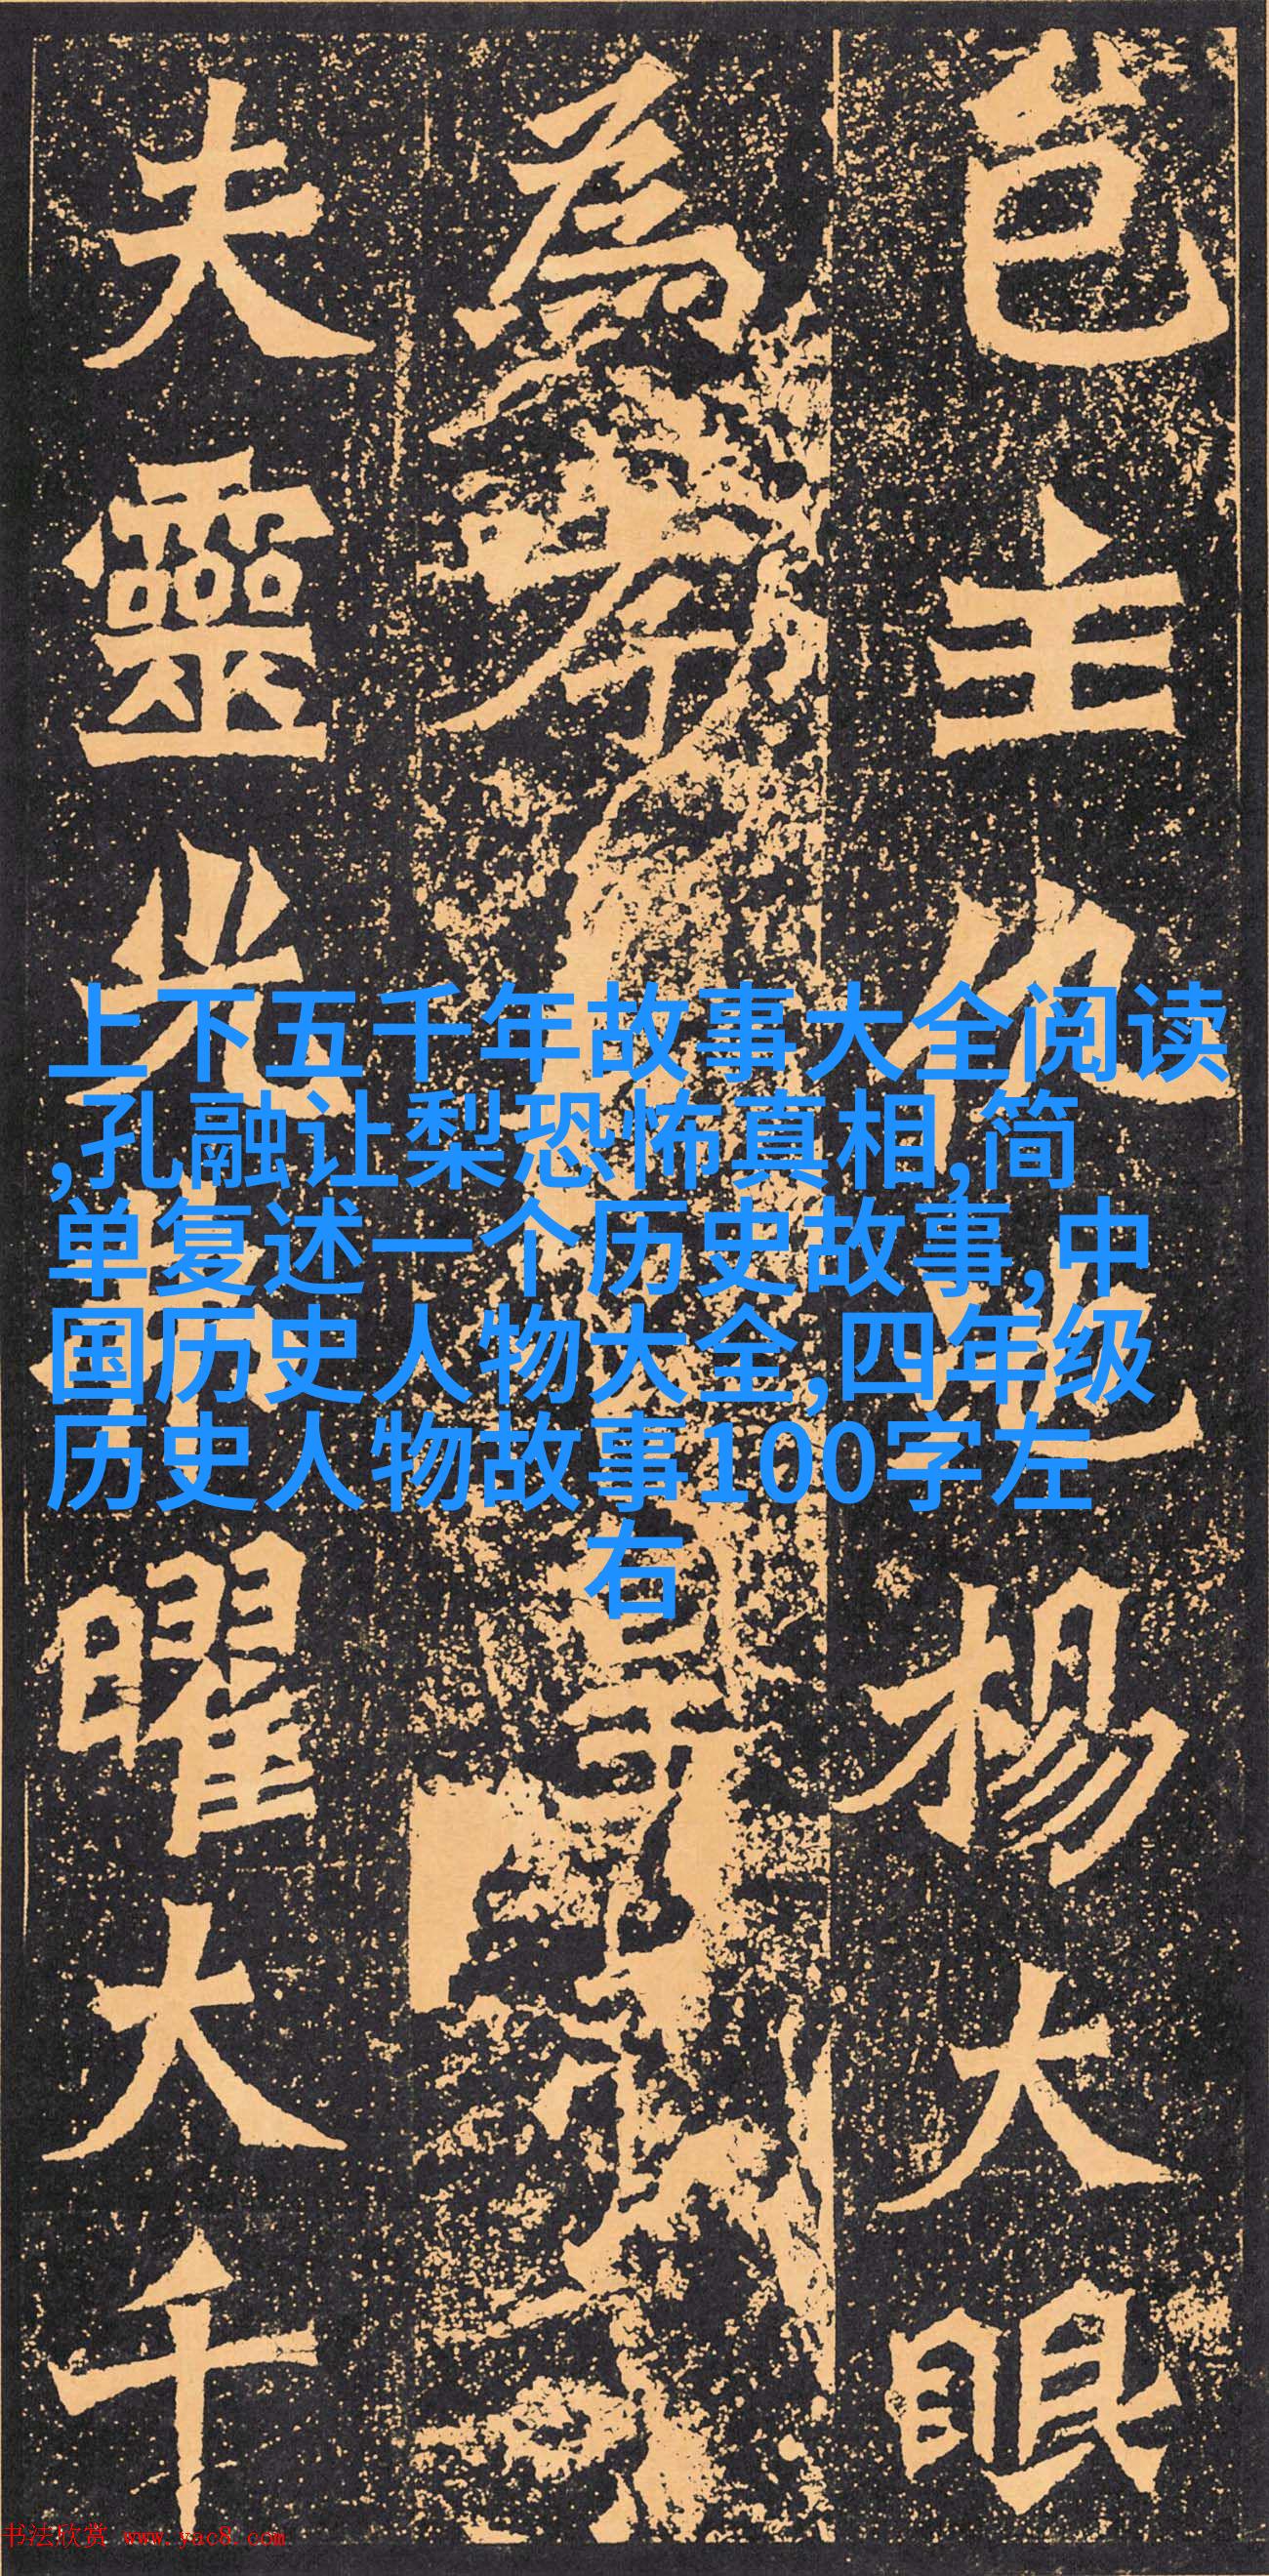 邑主仇池楊大眼
為孝
夫靈光弗曜大千
上下五千年故事大全阅读
,孔融让梨恐怖真相,简
单复述一个历史故事,中
国历史人物大全,四年级
历史人物故事100字左
右
书法欣赏 www.yac8.com